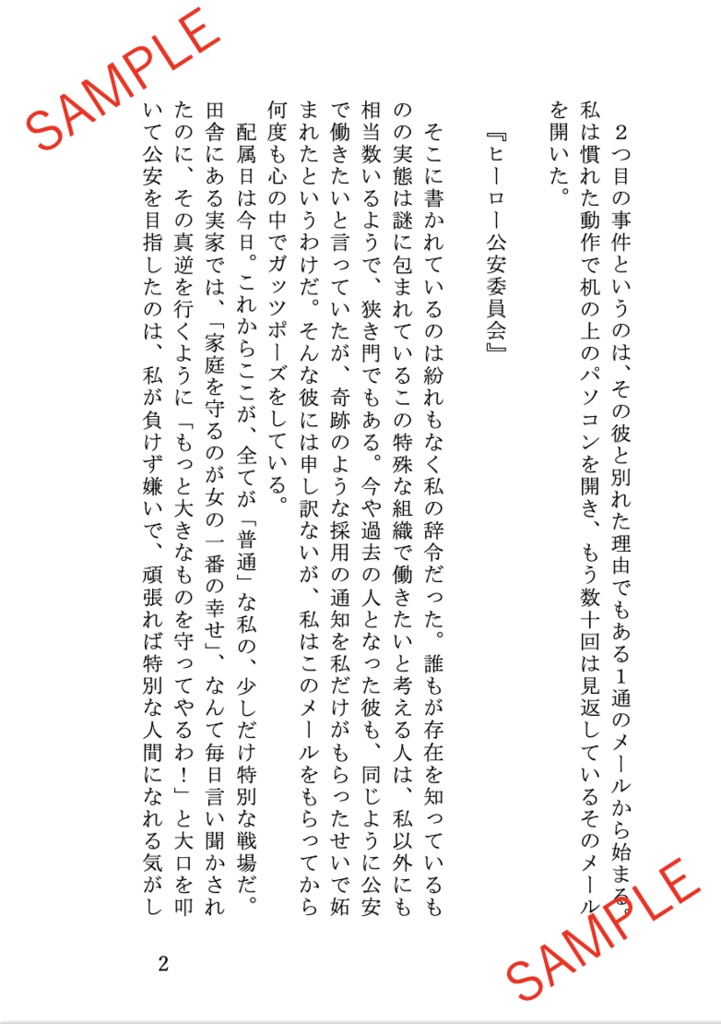 SAMPLE
２つ目の事件というのは、その彼と別れた理由でもある１通のメールから始まる。
私は慣れた動作で机の上のパソコンを開き、もう数十回は見返しているそのメール
を開いた。
『ヒーロー公安委員会』
そこに書かれているのは紛れもなく私の辞令だった。誰もが存在を知っているも
のの実態は謎に包まれているこの特殊な組織で働きたいと考える人は、私以外にも
相当数いるようで、狭き門でもある。今や過去の人となった彼も、同じように公安
で働きたいと言っていたが、奇跡のような採用の通知を私だけがもらったせいで妬
まれたというわけだ。そんな彼には申し訳ないが、私はこのメールをもらってから
何度も心の中でガッツポーズをしている。
配属日は今日。これからここが、全てが「普通」な私の、少しだけ特別な戦場だ。
田舎にある実家では、「家庭を守るのが女の一番の幸せ」、なんて毎日言い聞かされ
たのに、その真逆を行くように「もっと大きなものを守ってやるわ！」と大口を叩
いて公安を目指したのは、私が負けず嫌いで、頑張れば特別な人間になれる気がし
SAMPLE
2